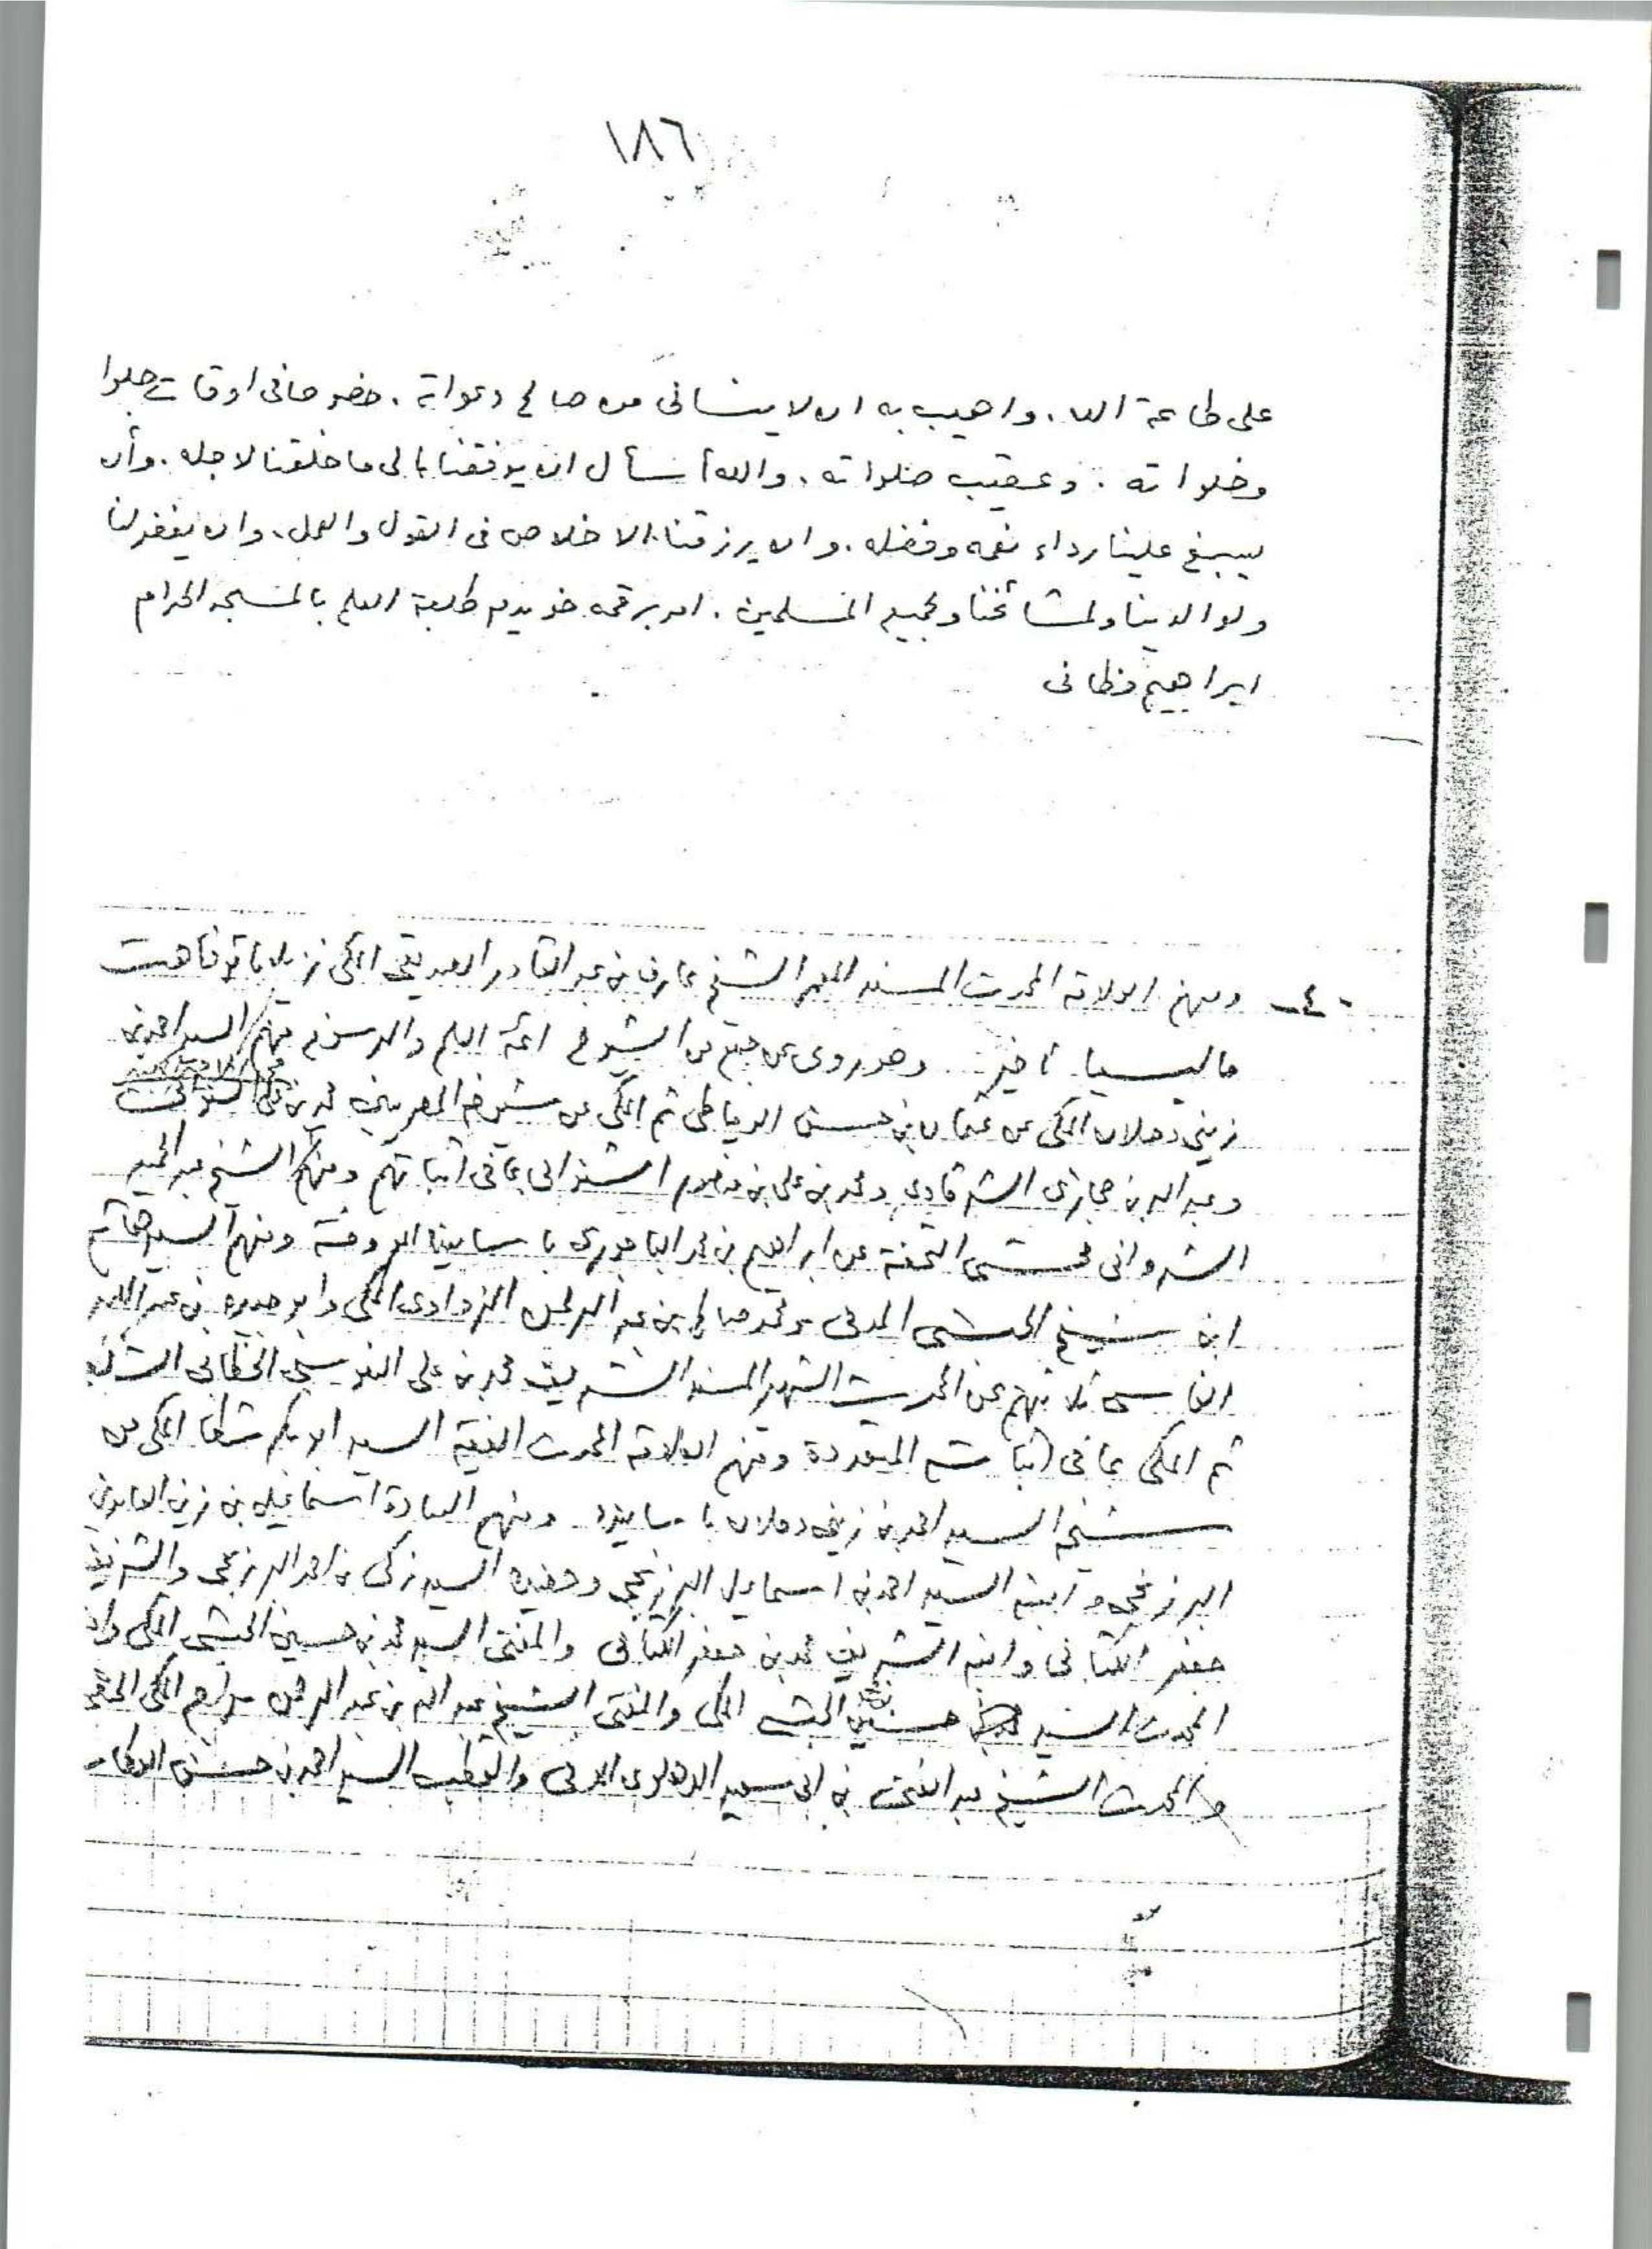 ١٨٦
على طاعة الله، واهيب به ان لا ينسانى من صالح دعواته، خصوصا فى اوقات جلوا
وخلواته، وعقيب صلواته، والله أسأل ان يوفقنا الى ما خلقنا لاجله، وأن
يسبغ علينا رداء نعمه وفضله، وان يرزقنا الاخلاص فى القول والعمل، وان يغفر لنا
ولوالدينا ولمشائخنا ولجميع المسلمين، امر برقمه خويدم طلبة العلم بالمسجد الحرام
ابراهيم فطانى
-٤- ومنهم العلامة المحدث المسند المعمر الشيخ عارف بن عبد القادر المكى نزيل
ماليسيا وهو روى عن جمع من الشيوخ ائمة العلم والدين منهم السيد احمد بن
زينى دحلان المكى عن عثمان بن حسن الدمياطى ثم المكى عن شيوخه المصريين محمد بن
وعبد الله بن حجازى الشرقاوى ومحمد بن على بن منصور الشنوانى بما فى اثباتهم ومنهم الشيخ عبد الحميد
الشروانى محشى التحفة عن ابراهيم بن محمد الباجورى با سانيده ومنهم السيد هاشم
ابن شيخ الحبشى المدنى ومحمد صالح بن عبد الرحمن الزواوى المكى وابو خضير بن عبد الله
الفاسى ثلاثتهم عن المحدث الشهير المسند الشريف محمد بن على السنوسى الخطابى
ثم المكى بما فى اثباته المتعددة ومنهم العلامة المحدث الفقيه السيد ابو بكر شطا المكى عن
شيخه السيد احمد بن زينى دحلان با سانيده ومنهم السادة اسماعيل بن زين العابدين
البرزنجى وابنه السيد احمد بن اسماعيل البرزنجى وحفيده السيد زكى بن احمد البرزنجى والشريف
جعفر الكتانى وابنه الشريف محمد بن جعفر الكتانى والمفتى السيد محمد بن حسين الحبشى المكى وابنه
المحدث السيد حسين الحبشى المكى والمفتى الشيخ عبد الله بن عبد الرحمن سراج المكى الحنفى
والمحدث الشيخ عبد الغنى بن ابى سعيد الدهلوى المدنى والقطب السيد احمد بن حسن العطاس